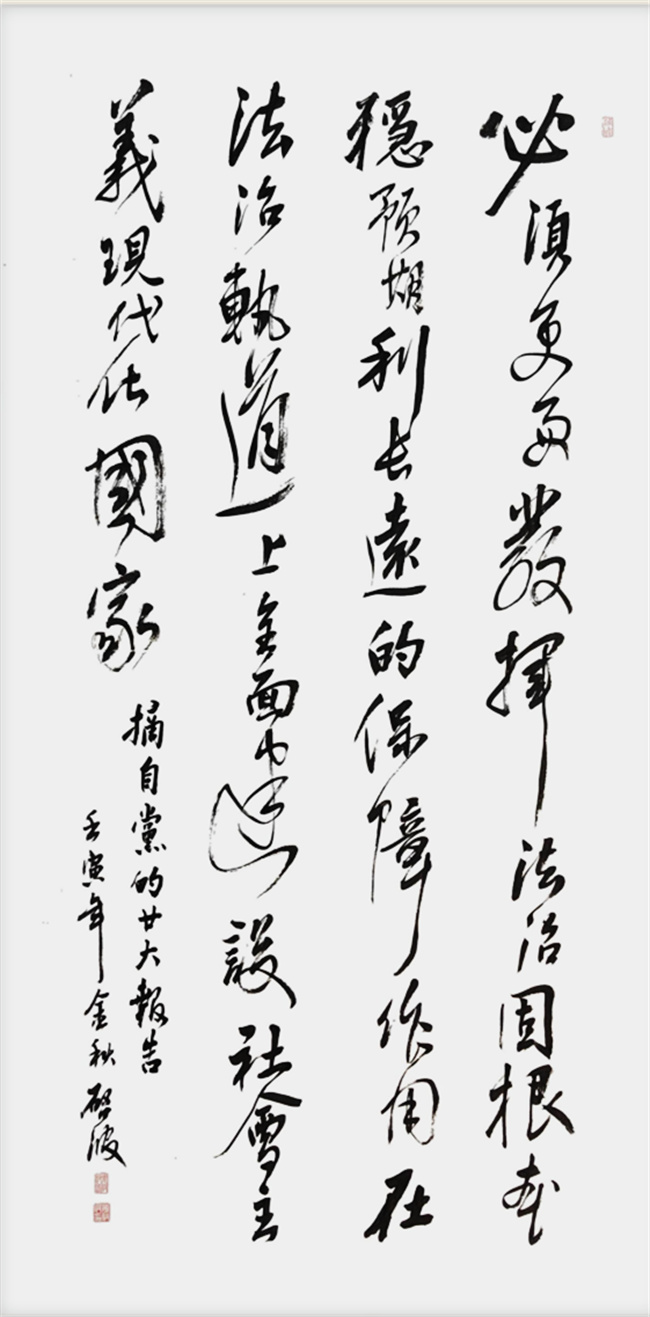 必須更好發揮法治固根本
穩預期利長遠的保障作用在
法治軌道上全面建設社會主
義現代化國家
摘自黨的廿大報告
壬寅年金秋